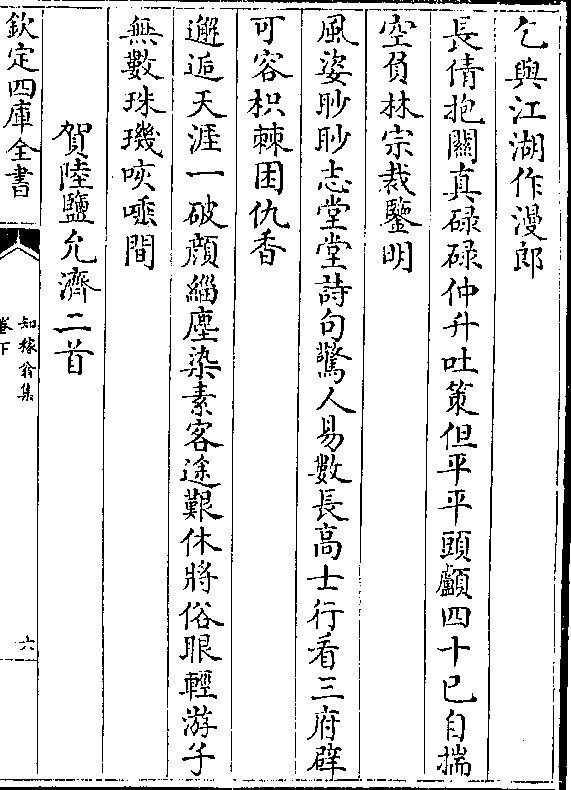 乞與江湖作漫郎
長倩抱關真碌碌仲升吐策但平平頭顱四十已自揣
空負林宗裁鑒明
風姿眇眇志堂堂詩句驚人易數長高士行看三府辟
可容枳棘困仇香
邂逅天涯一破顔緇塵染素客途艱休將俗眼輕游子
無數珠璣咳唾間
賀陸鹽允濟二首
欽定四庫全書
知稼翁集
卷下
六